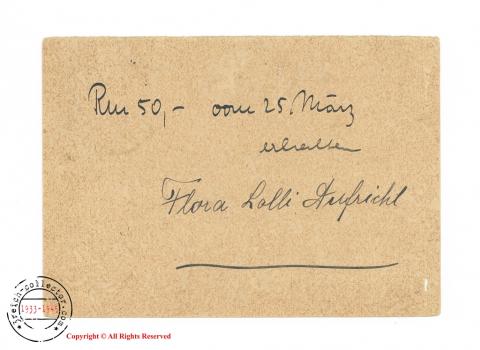 Rm 50,- vom 25. März
erhalten
Flora Lolli Aufricht
3reich-collector.com
1933-1945
Copyright © All Rights Reserved